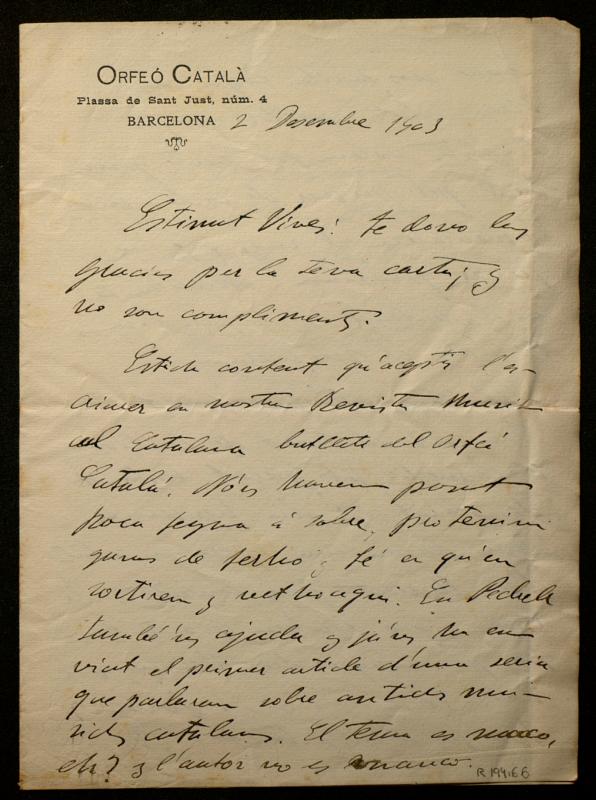 ORFEÓ CATALÀ
Plassa de Sant Just, núm. 4
BARCELONA
2 Desembre 1903
Estimat Vives: te dono las
gracias per la teva carta, y
no son compliments.
Estich content qu'acceptis l'es-
criurer en nostra Revista Musi-
cal Catalana butlletí del Orfeó
Catalá. Nos havem posat
poca feyna á sobre, pro tenim
ganas de ferho, fé en qu'en
sortirem y vethoaquí. En Pedrell
també'ns ajuda y ja'ns ha en-
viat el primer article d'una serie
que parlaran sobre antichs mú-
sichs catalans. El tema es maco,
eh? y l'autor no es manco.
R 194.66